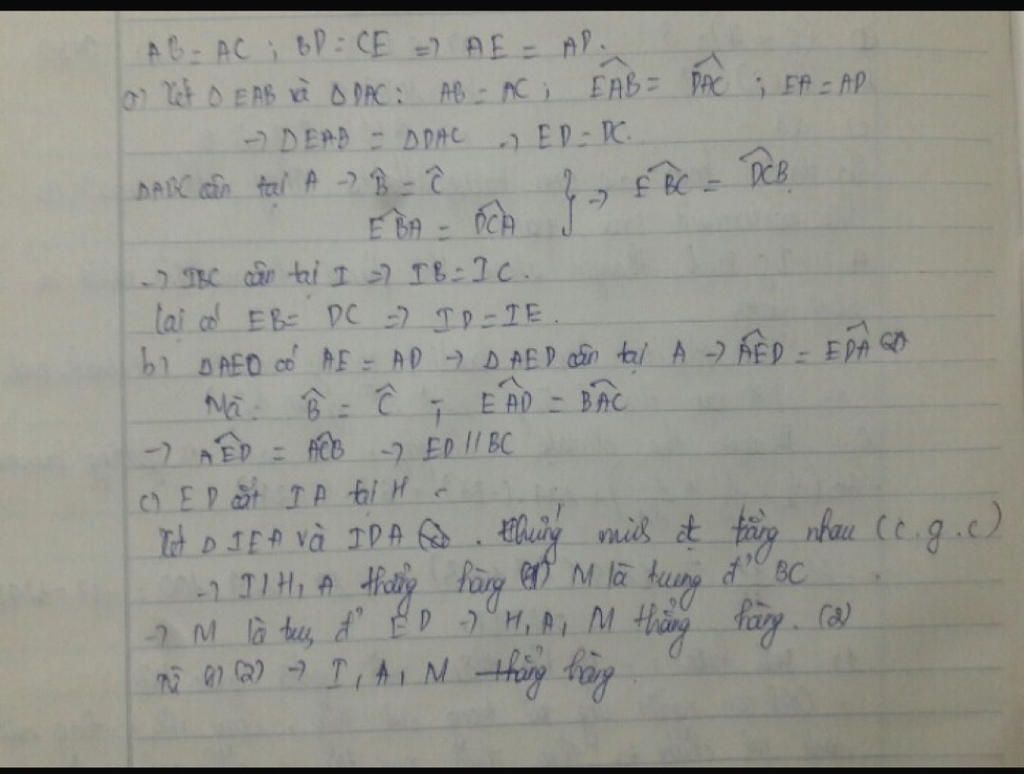 AB = AC ; BD = CE => AE = AD.
a) Xét Δ EAB và Δ DAC : AB = AC ; EAB^ = DAC^ ; EA = AD
-> Δ EAB = Δ DAC -> ED = DC.
ΔABC cân tại A -> B^ = C^ } -> EBC^ = DCB^.
EBA^ = DCA^
-> IBC cân tại I => IB = IC.
lại có EB = DC => ID = IE.
b) Δ AED có AE = AD -> Δ AED cân tại A -> AED^ = EDA^
Mà : B^ = C^ ; EAD^ = BAC^
-> AED^ = ACB^ -> ED // BC
c) ED cắt IA tại H
Xét Δ IEA và IDA . chứng minh đt bằng nhau (c.g.c)
-> I, H, A thẳng hàng (1) M là trung đ' BC
-> M là đ' ED -> H, A, M thẳng hàng. (2)
Từ (1) (2) -> I, A, M thẳng hàng